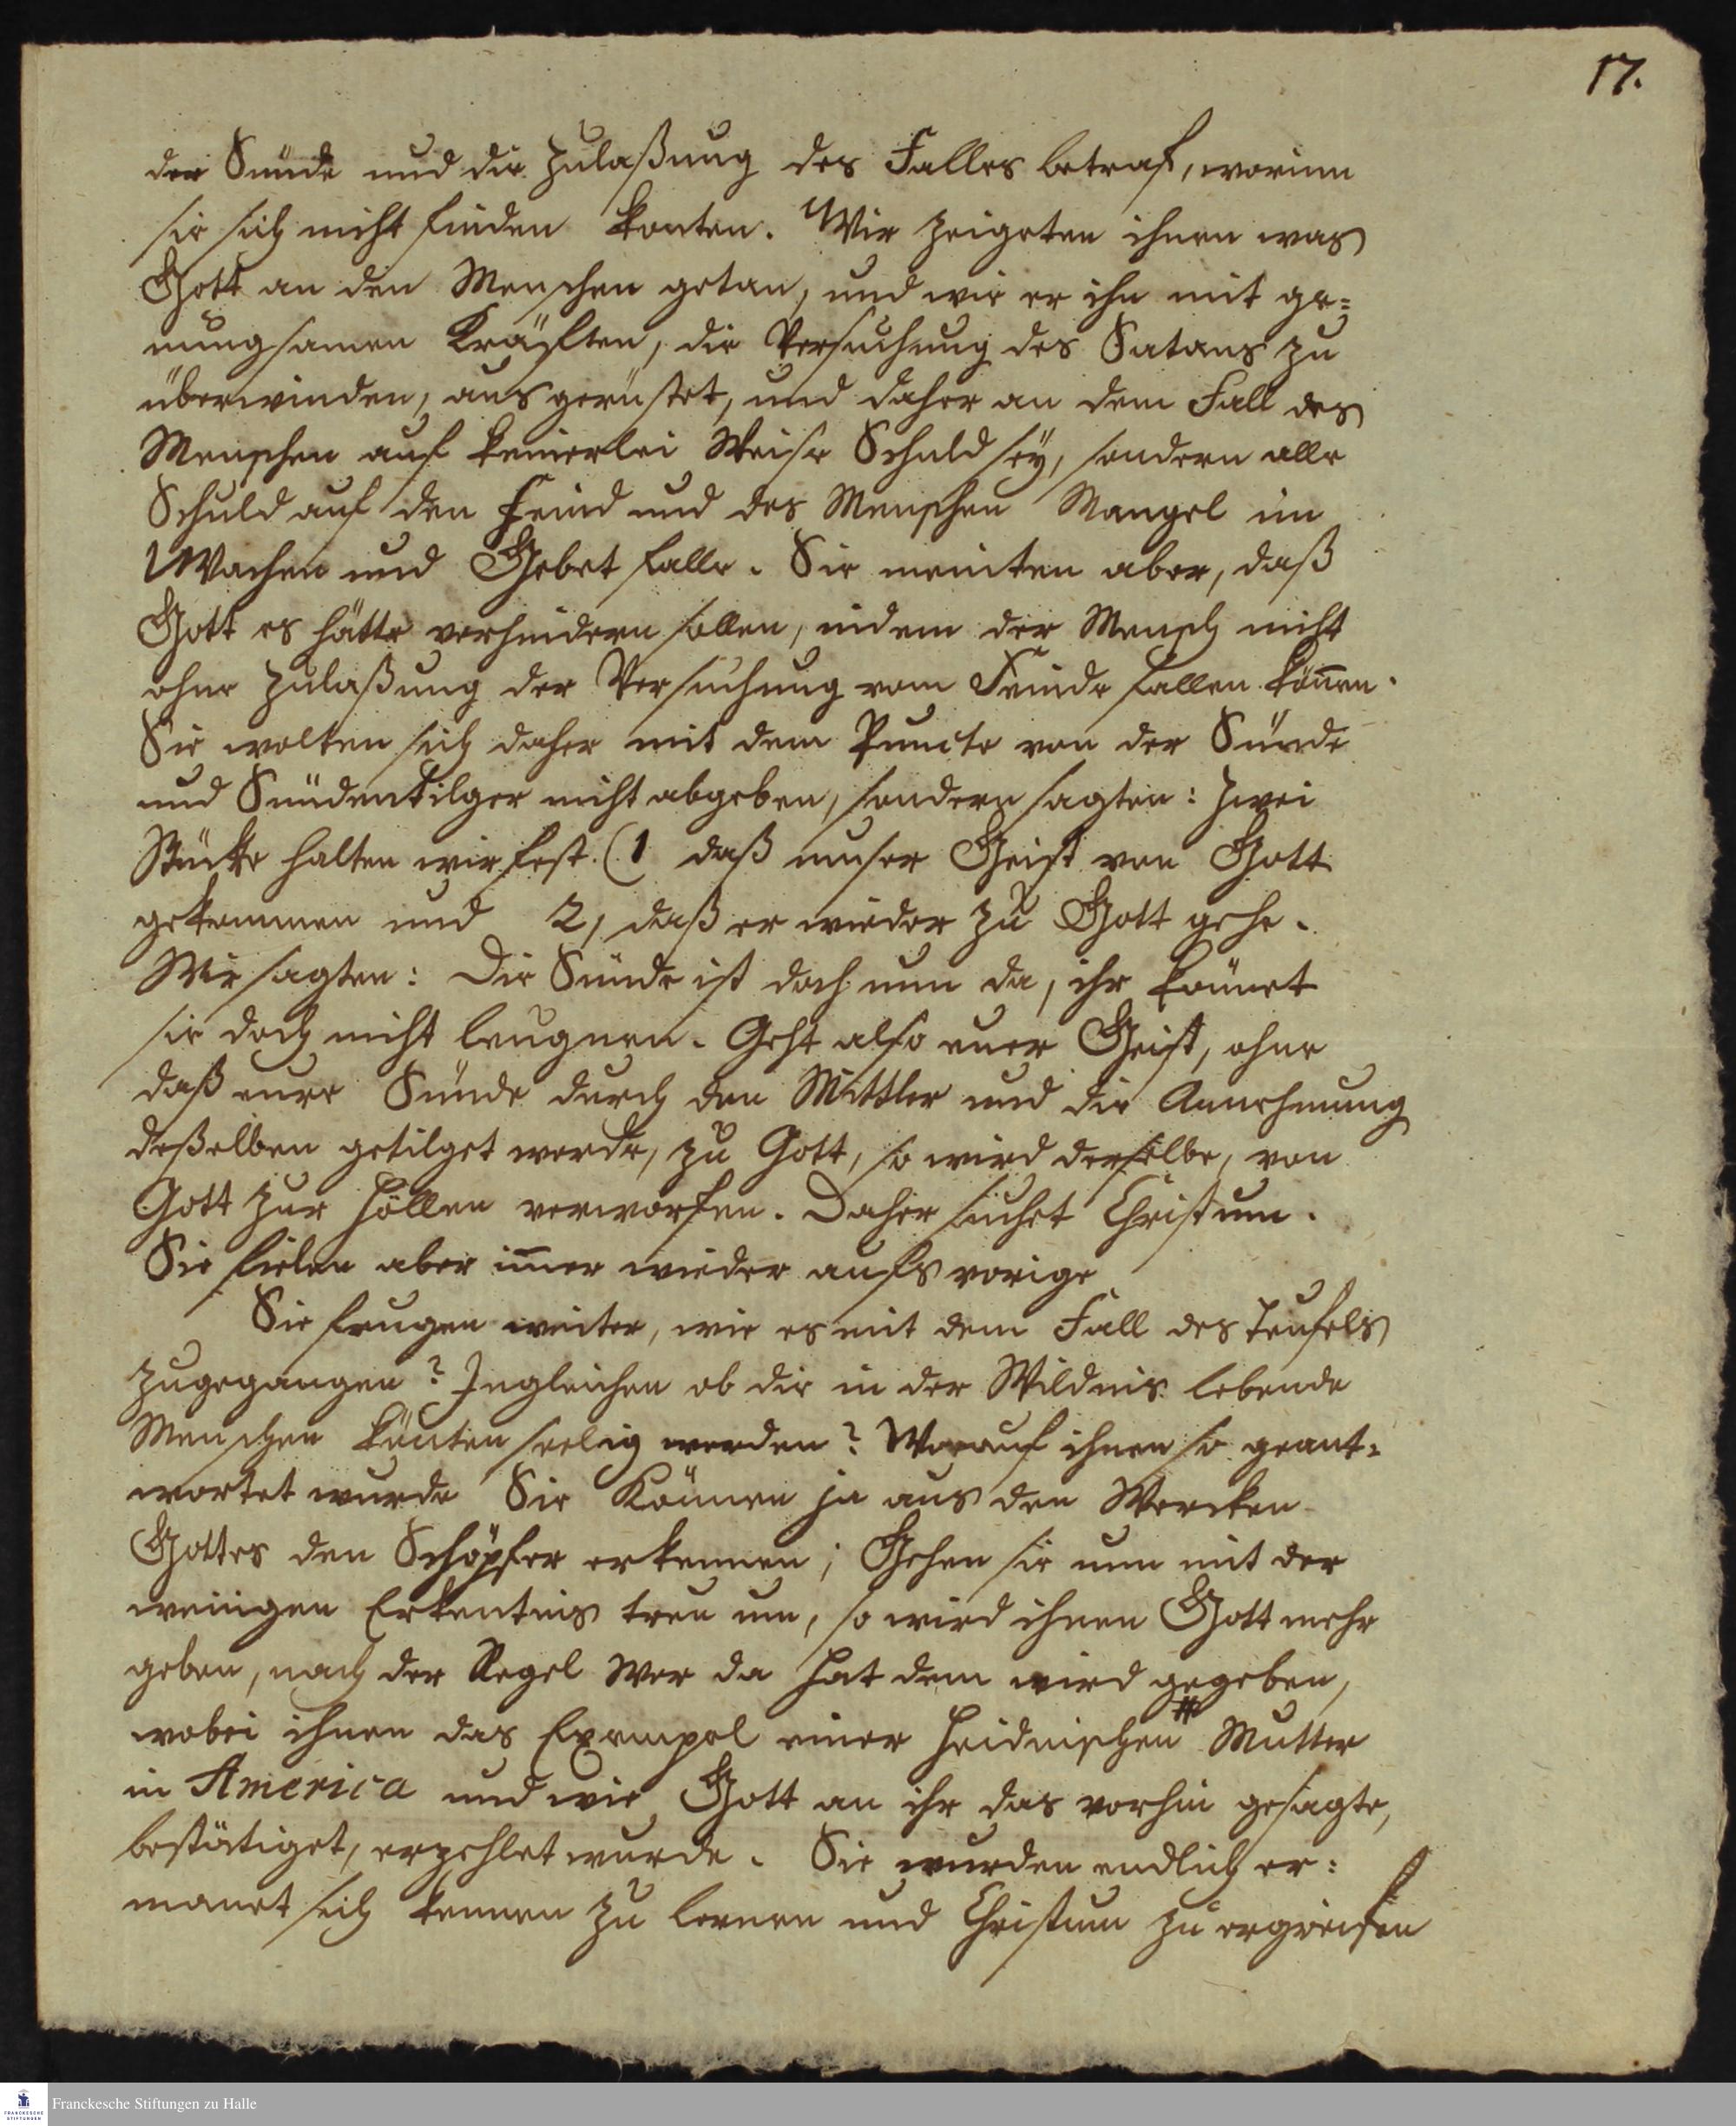 17.
der Sünde und die Zulaßung des Falles betraf, worinn
sie sich nicht finden konten. Wir zeigeten ihnen was
Gott an den Menschen getan, und wie er ihn mit ge=
nungsamen Kräfften, die Versuchung des Satans zu
überwinden, ausgerüstet, und daher an dem Fall des
Menschen auf keinerlei Weise Schuld sey, sondern alle
Schuld auf den Feind und des Menschen Mangel im
Wachen und Gebet falle. Sie meinten aber, daß
Gott es hätte verhindern sollen, indem der Mensch nicht
ohne Zulaßung der Versuchung vom Feinde fallen köñen.
Sie wolten sich daher mit dem Puncte von der Sünde
und Sündentilger nicht abgeben, sondern sagten: Zwei
Stücke halten wir fest. (1 daß unser Geist von Gott
gekommen und 2, daß er wieder zu Gott gehe.
Wir sagten: Die Sünde ist doch nun da, ihr könnet
sie doch nicht leugnen. Geht also euer Geist, ohne
daß eure Sünde durch den Mittler und die Annehmung
deßelben getilget werde, zu Gott, so wird derselbe, von
Gott zur Höllen verworfen. Daher suchet Christum.
Sie fielen aber im̄er wieder aufs vorige
Sie frugen weiter, wie es mit dem Fall des Teufels
zugegangen? Ingleichen ob die in der Wildnis lebende
Menschen könten seelig werden? Worauf ihnen so geant=
wortet wurde Sie Können ja aus den Wercken
Gottes den Schöpfer erkennen; Gehen sie nun mit der
wenigen Erkentnis treu um, so wird ihnen Gott mehr
geben, nach der Regel Wer da hat dem wird gegeben,
wobei ihnen das Exempel einer Heidnischen # Mutter
in America und wie Gott an ihr das vorhin gesagte,
bestätiget, erzehlet wurde. Sie wurden endlich er=
manet sich kennen zu lernen und Christum zu ergreifen
Franckesche Stiftungen zu Halle